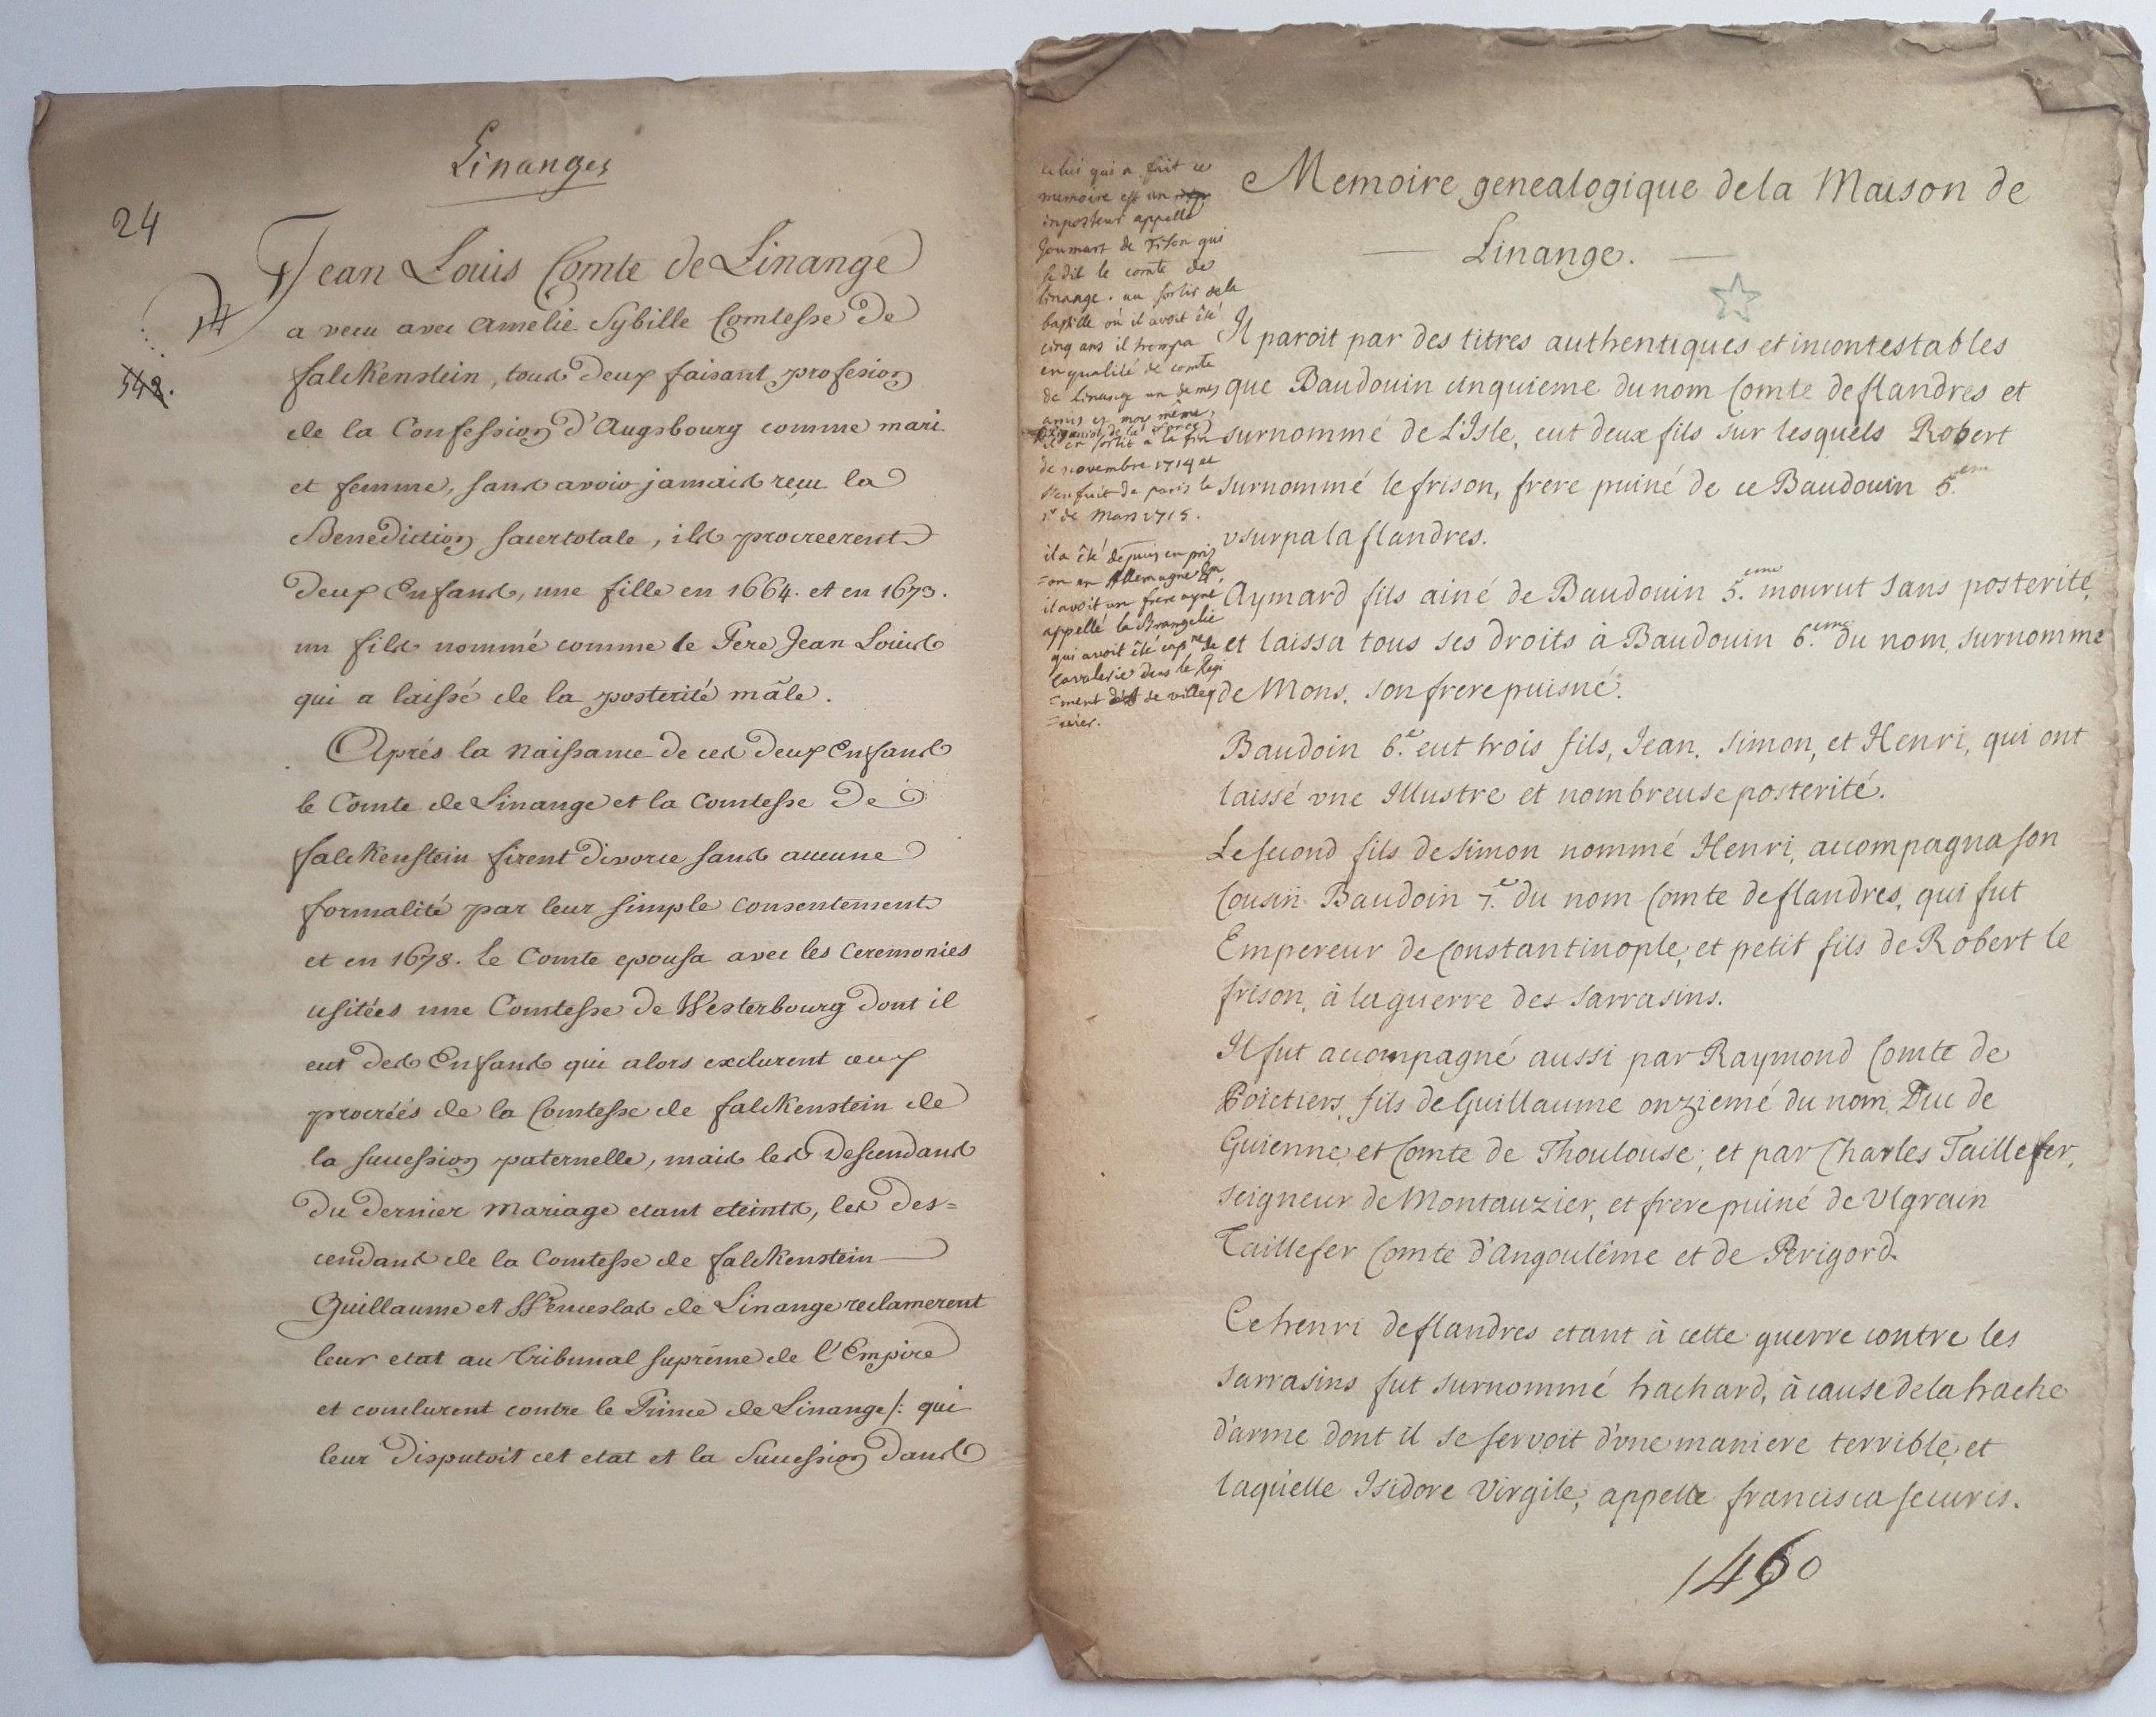 Linanges
24
Jean Louis Comte de Linange
a vecu avec Amelie Sybille Comtesse De
falckenstein, tous Deux faisant profesion
de la Confession D'Augsbourg comme mari
548.
et femme, sans avoir jamais reçu la
Benediction sacertotale, ils procreerent
Deux Enfans, une fille en 1664. et en 1673.
un fils nommé comme le Pere Jean Louis
qui a laissé de la posterité mâle.
Aprés la Naissance de ces Deux Enfans
le Comte de Linange et la Comtesse De
falckenstein firent Divorce sans aucune
formalité par leur simple consentement
et en 1678. le Comte epousa avec les Ceremonies
usitées une Comtesse De Westerbourg Dont il
eut Des Enfans qui alors exclurent ceux
procréés de la Comtesse de falckenstein de
la succession paternelle, mais les Descendans
Du Dernier Mariage etant eteints, les Des=
cendans de la Comtesse de falckenstein
Guillaume et Wenceslas de Linange reclamerent
leur etat au Tribunal suprême de l'Empire
et conclurent contre le Prince de Linange /: qui
leur Disputoit cet etat et la Succession Dans
Memoire genealogique de la Maison de
Linange.
celui qui a fait ce
memoire est un
imposteur appellé
Joumart de Tison qui
se dit le comte de
linange. au sortir de la
bastille où il avoit été
cinq ans il trompa
en qualité de comte
de linange un de mes
amis et moy même,
il en sortit à la fin
de novembre 1714 et
s'enfuit de paris le
1er de Mars 1715.
il a été depuis en pris
=on en Allemagne
il avoit un frere ayné
appellé la Brangelie
qui avoit été capne de
cavalerie dans le Regi
=ment de villeq
=uier.
Il paroit par des titres authentiques et incontestables
que Baudouin cinquieme du nom Comte de flandres et
surnommé de L'Isle, eut deux fils sur lesquels Robert
surnommé le frison, frere puiné de ce Baudouin 5.em
vsurpa la flandres.
Aymard fils ainé de Baudouin 5.eme mourut sans posterité,
et laissa tous ses droits à Baudouin 6.eme du nom, surnommé
de Mons, son frere puisné.
Baudoin 6.e eut trois fils, Jean, Simon, et Henri, qui ont
laissé vne Illustre et nombreuse posterité.
Le second fils de Simon nommé Henri, accompagna son
Cousin Baudoin 7.e du nom Comte de flandres, qui fut
Empereur de Constantinople, et petit fils de Robert le
frison, à la guerre des Sarrasins.
Il fut accompagné aussi par Raymond Comte de
Poictiers, fils de Guillaume onziemé du nom, Duc de
Guienne et Comte de Thoulouse, et par Charles Taillefer,
seigneur de Montauzier, et frere puiné de Vlgrain
Taillefer Comte d'Angoulême et de Perigord.
Ce henri de flandres etant à cette guerre contre les
Sarrasins fut surnommé hachard, à cause de la hache
d'arme dont il se servoit d'vne maniere terrible, et
laquelle Isidore Virgile, appelle francisca securis.
1460